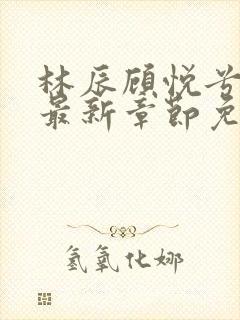 林辰顾悦兮
最新章节免
氢氧化娜